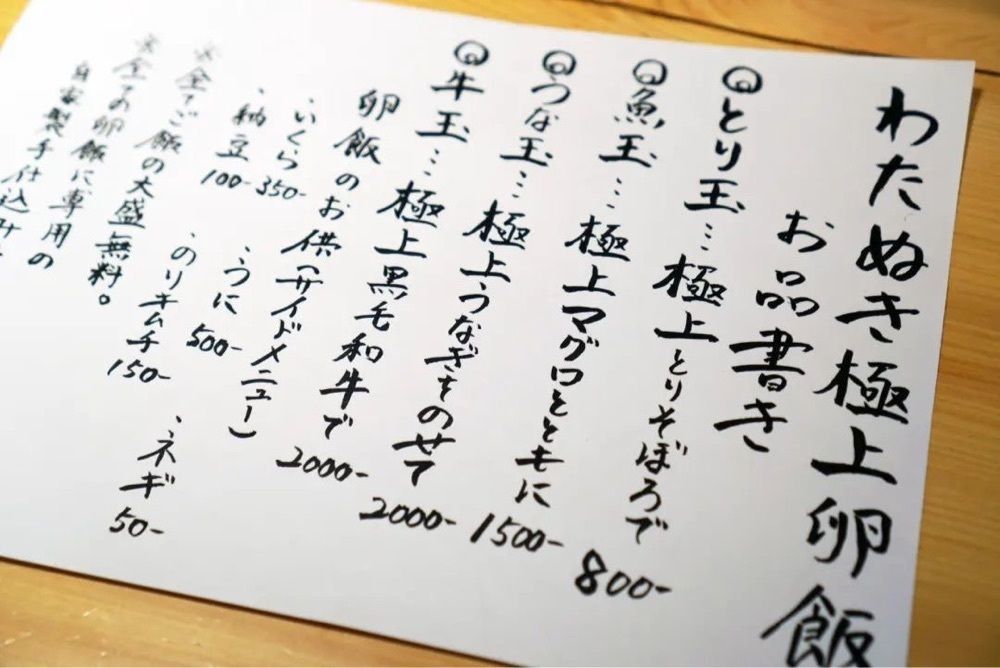 わたぬき極上卵飯
お品書き
◎とり玉…極上とりそぼろで 800-
◎魚玉…極上マグロとともに 1500-
◎うな玉…極上うなぎをのせて 2000-
◎牛玉…極上黒毛和牛で 2000-
卵飯のお供(サイドメニュー)
・いくら 350- ・うに 500-
・納豆 100- ・のりキムチ 150- ・ネギ 50-
※全てご飯の大盛無料。
※全ての卵飯に専用の
自家製手仕込み